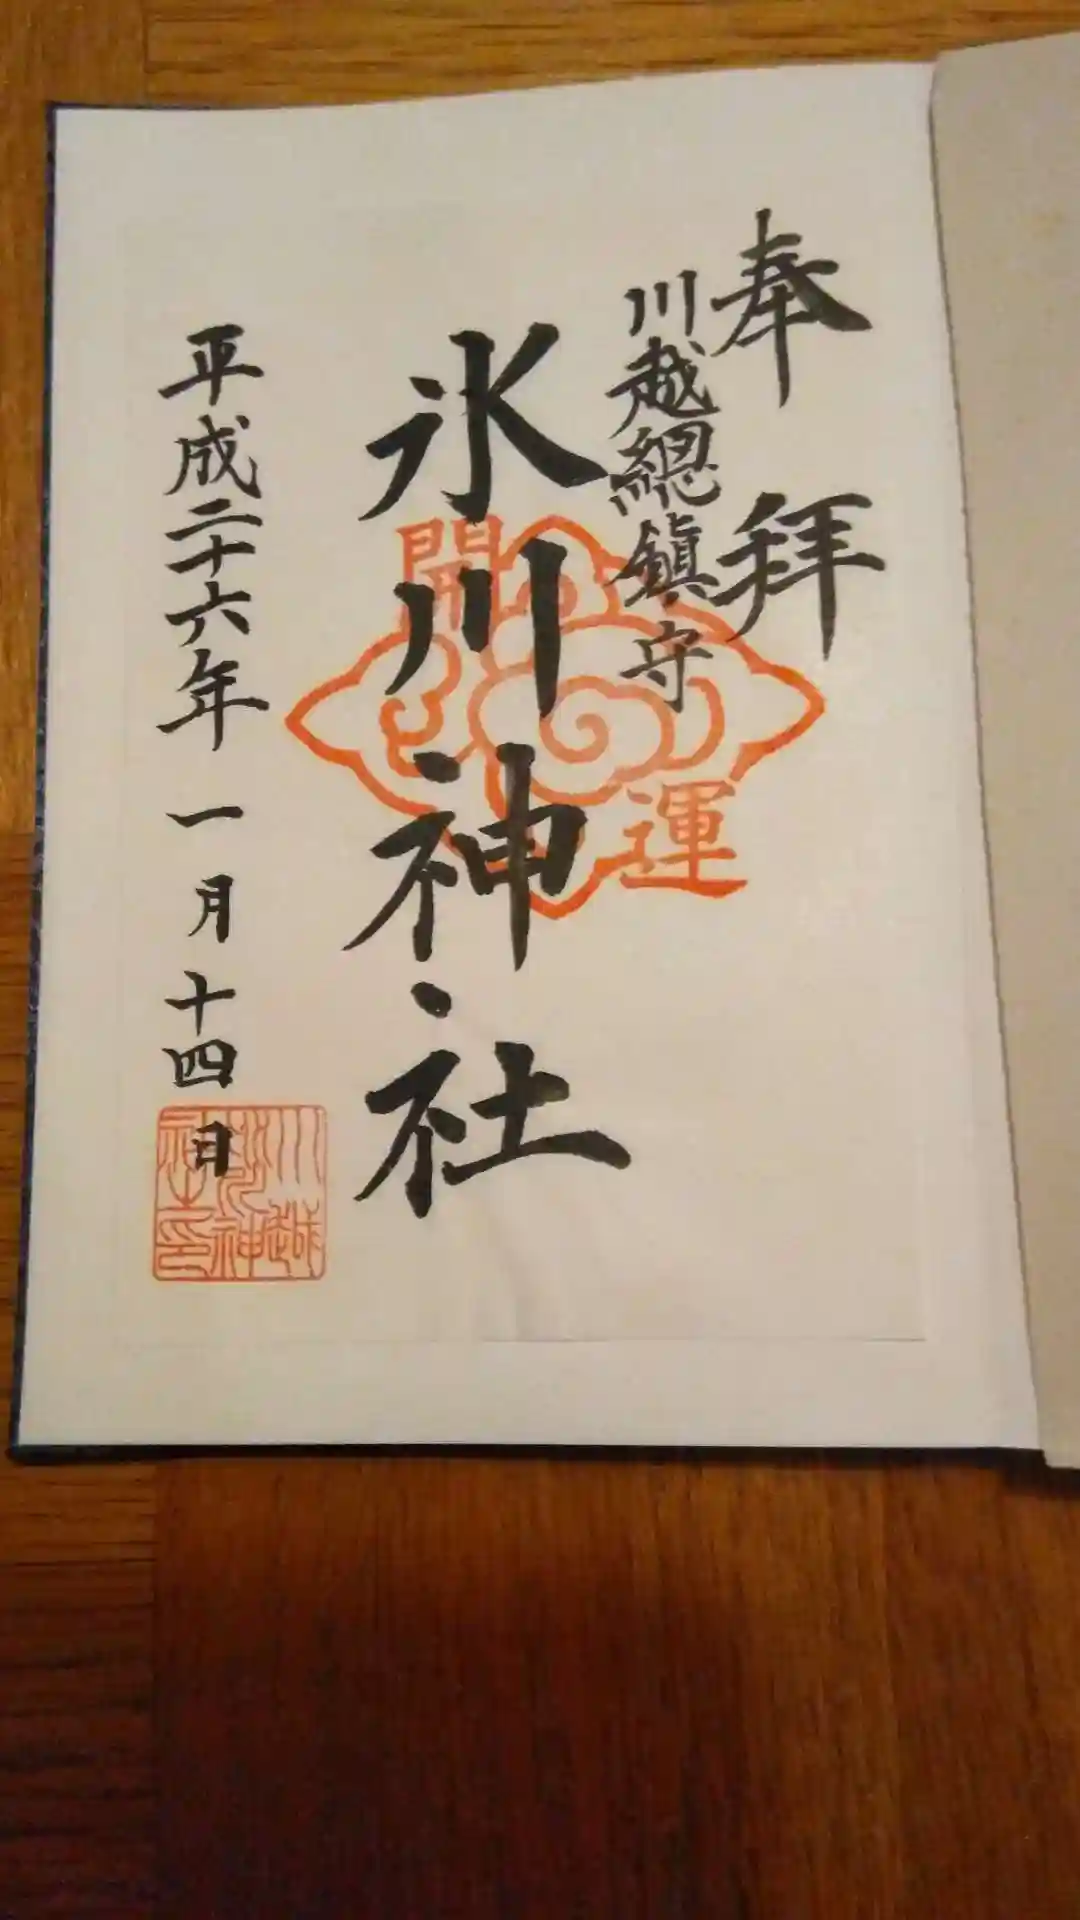 奉拝
川越總鎮守
氷川神社
開運
平成二十六年一月十四日
川越氷川神社之印